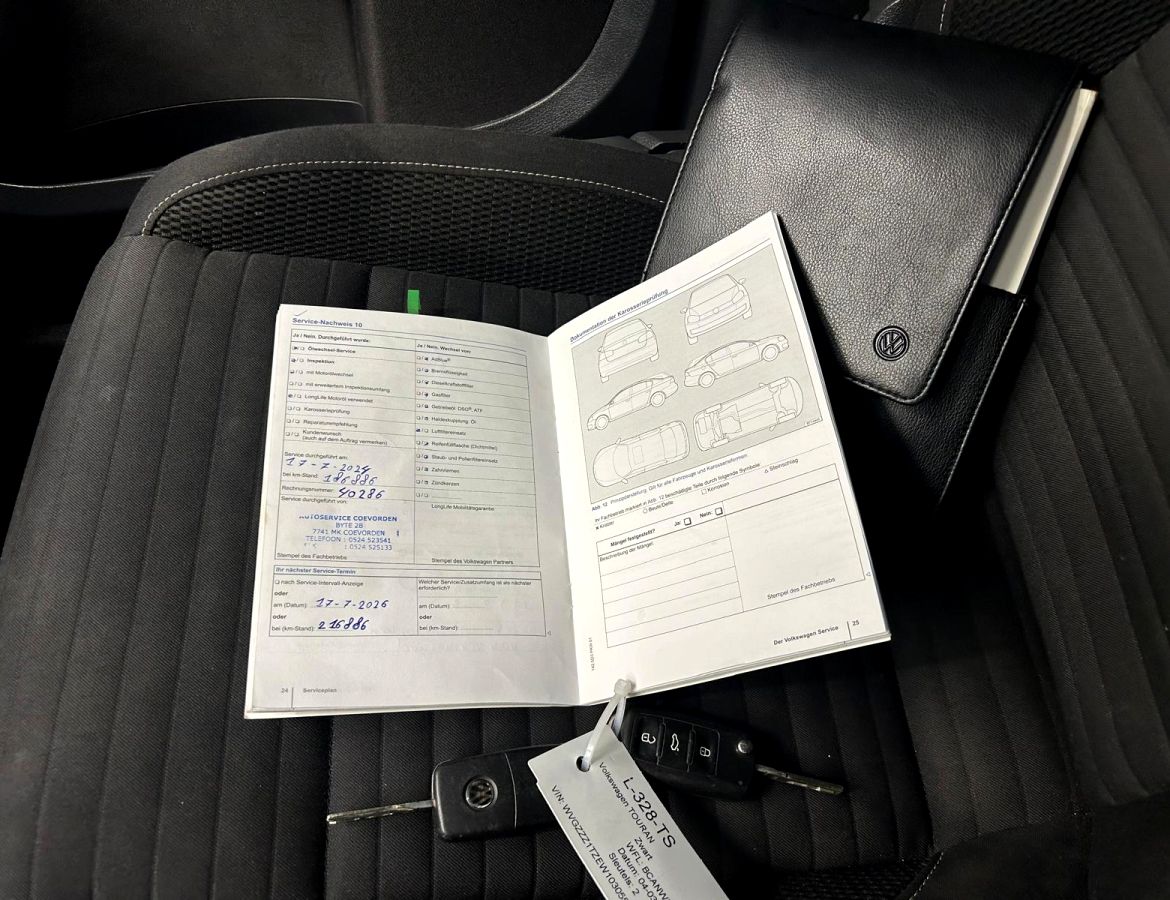 Service-Nachweis 10
Ja / Nein. Durchgeführt wurde:
Ölwechsel-Service
Inspektion
mit Motorölwechsel
mit erweitertem Inspektionsumfang
LongLife Motoröl verwendet
Karosserieprüfung
Reparaturempfehlung
Kundenwunsch
(auch auf dem Auftrag vermerken)
Service durchgeführt am:
17-7-2024
bei km-Stand: 186886
Rechnungsnummer: 40286
Service durchgeführt von:
AUTOSERVICE COEVORDEN
BYTE 2B
7741 MK COEVORDEN
TELEFOON : 0524 523541
: 0524 525133
Stempel des Fachbetriebs
Ja / Nein. Wechsel von:
AdBlue®
Bremsflüssigkeit
Dieselkraftstofffilter
Gasfilter
Getriebeöl: DSG®, ATF
Haldexkupplung: Öl
Luftfiltereinsatz
Reifenfüllflasche (Dichtmittel)
Staub- und Pollenfiltereinsatz
Zahnriemen
Zündkerzen
LongLife Mobilitätsgarantie
Stempel des Volkswagen Partners
Ihr nächster Service-Termin
nach Service-Intervall-Anzeige
oder
am (Datum): 17-7-2026
oder
bei (km-Stand): 216886
Welcher Service/Zusatzumfang ist als nächster
erforderlich?
am (Datum):
oder
bei (km-Stand):
24 Serviceplan
Dokumentation der Karosserieprüfung
Abb. 12 Prinzipdarstellung: Gilt für alle Fahrzeuge und Karosserieformen
Ihr Fachbetrieb markiert in Abb. 12 beschädigte Teile durch folgende Symbole
x Kratzer ○ Beule/Delle □ Korrosion △ Steinschlag
Mängel festgestellt? Ja: Nein:
Beschreibung der Mängel:
Stempel des Fachbetriebs
Der Volkswagen Service 25
L-328-TS
Volkswagen TOURAN
VIN: WVGZZZ1TZEW10305
Zwart
WFL: BCANW
Datum: 04-03
Sleutels: 2